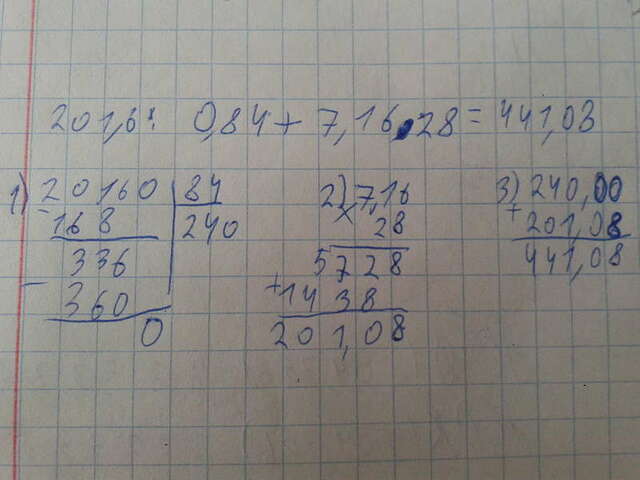 201,6: 0,84 + 7,16 · 28 = 441,03
1) 20160 | 84
- 168 | 240
336
- 360
0
2) 7,16
× 28
5728
+ 1438
201,08
3) 240,00
+ 201,08
441,08